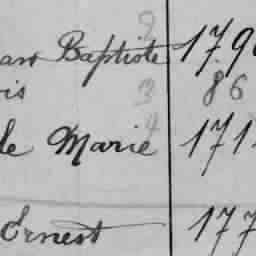 2
Baptiste 179
is 3 86
4
le Marie 171
Ernest 177